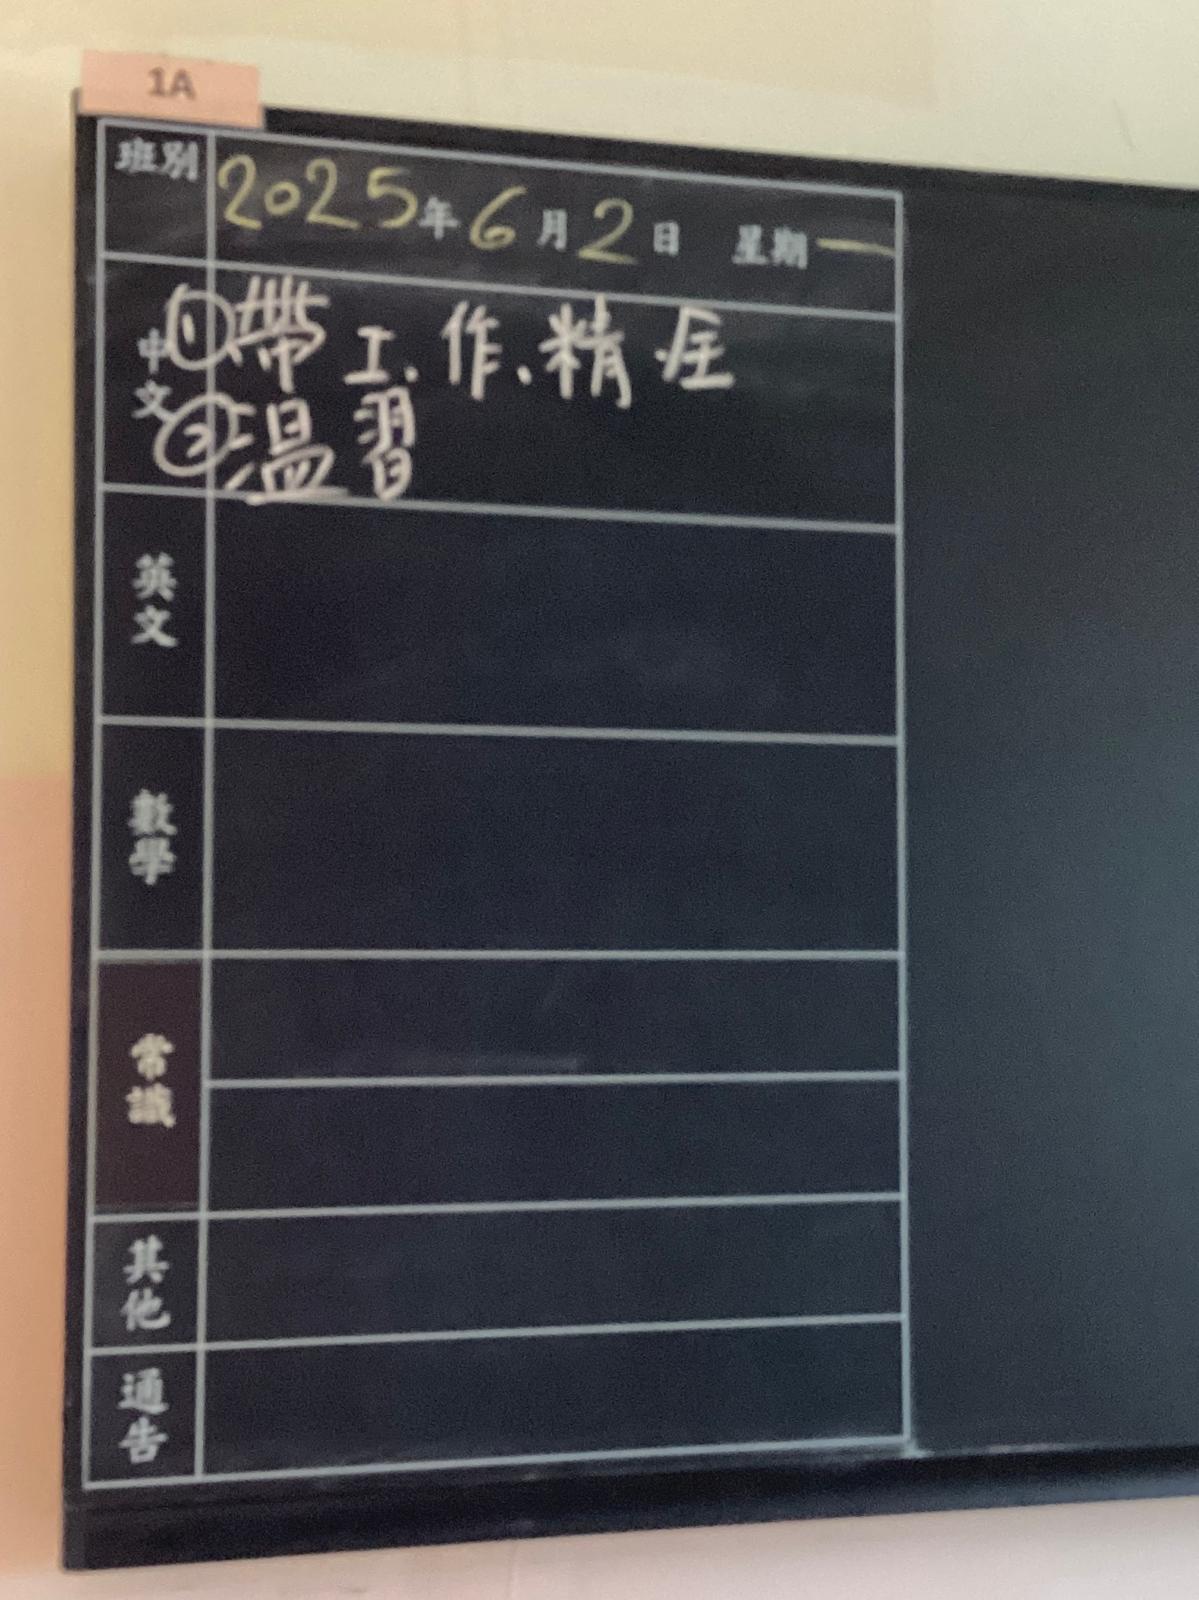 1A
班別 2025年6月2日 星期一
中文 ①帶工、作、精
②溫習
英文
數學
常識
其他
通告